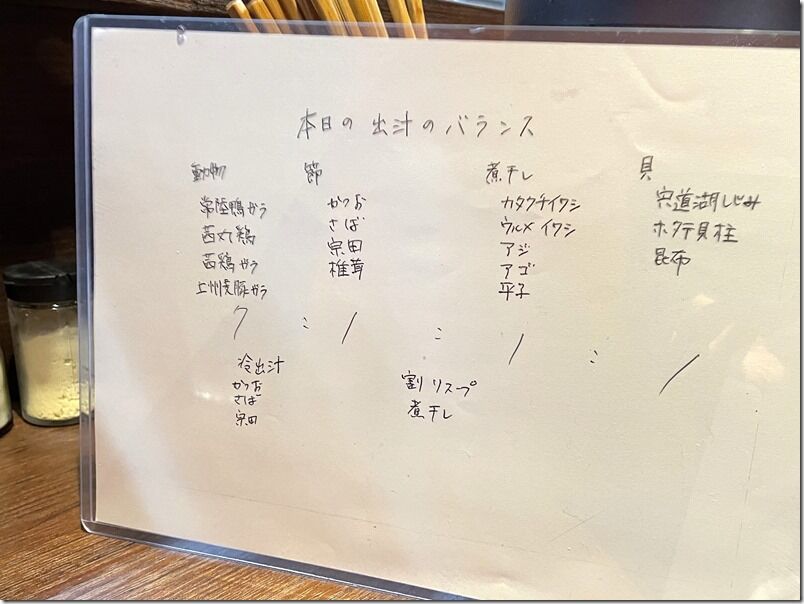 本日の出汁のバランス
動物 節 煮干し 貝
常陸鴨がら かつお カタクチイワシ 宍道湖しじみ
茜丸鶏 さば ウルメイワシ ホタテ貝柱
茜鶏がら 宗田 アジ 昆布
上州麦豚がら 椎茸 アゴ
平子
7 : 1 : 1 : 1
冷出汁 割りスープ
かつお 煮干し
さば
宗田